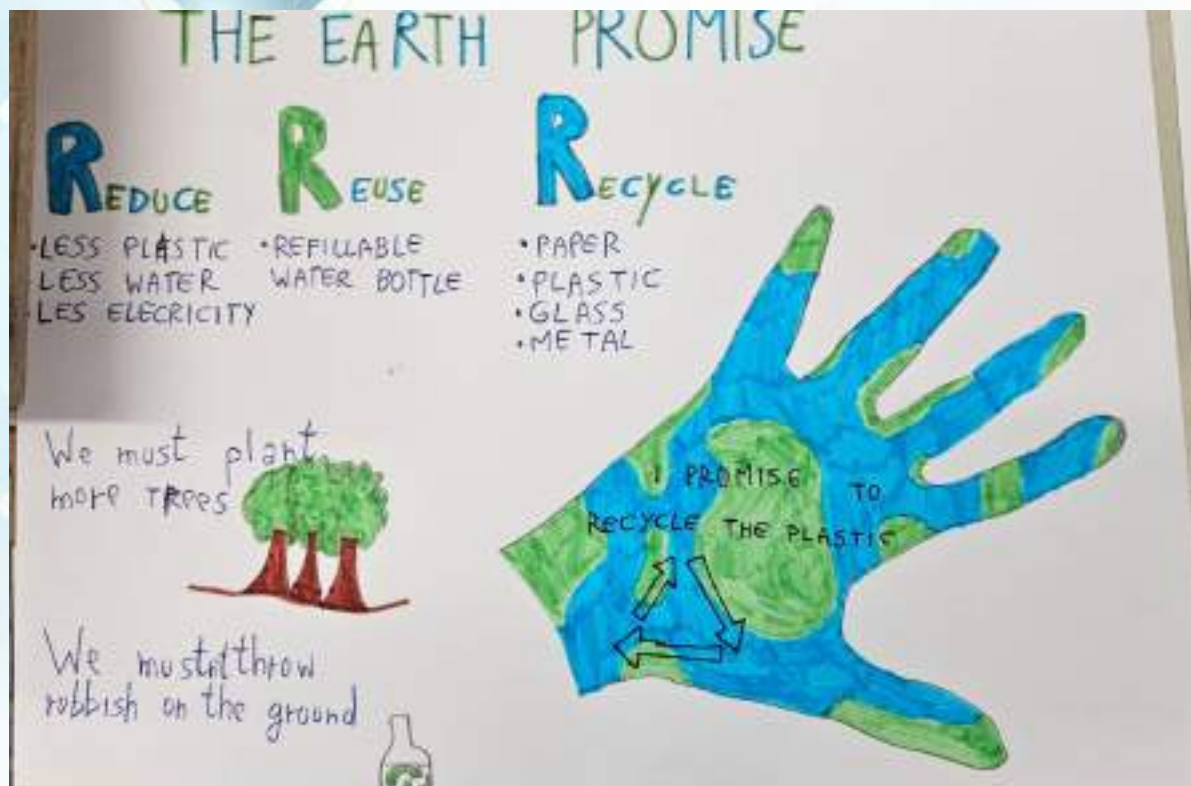 THE EARTH PROMISE
REDUCE REUSE RECYCLE
·LESS PLASTIC
LESS WATER
LES ELECRICITY
·REFILLABLE
WATER BOTTLE
·PAPER
·PLASTIC
·GLASS
·METAL
We must plant
more TREES
We mustn't throw
rubbish on the ground
I PROMISE TO
RECYCLE THE PLASTIC